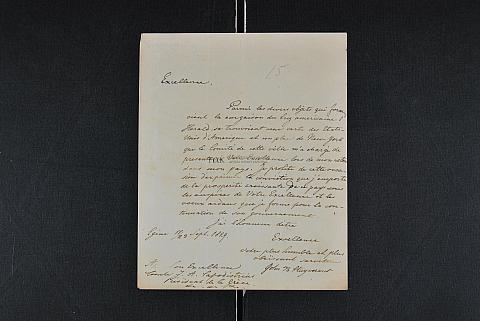 15
Excellence,
Parmi les divers objets qui for
maient la cargaison du brig americain l'
Herald se trouvaient une carte des Etats
Unis d'Amerique et un plan de New York
que le Comité de cette ville m'a chargé de
presenter à Votre Excellence lors de mon
dans mon pays. Je profite de cette occa
sion d'exprimer la conviction que j'emporte
de la prosperité croissante de ce pays sous
les auspices de Votre Excellence et les
voeux ardens que je forme pour la con
tinuation de son gouvernement
J'ai l'honneur d'etre
Excellence
votre plus humble et plus
obéissant serviteur
Egine Sept. 1829.
A Son Excellence
Comte J. A. Capodistrias
Président de la Grèce